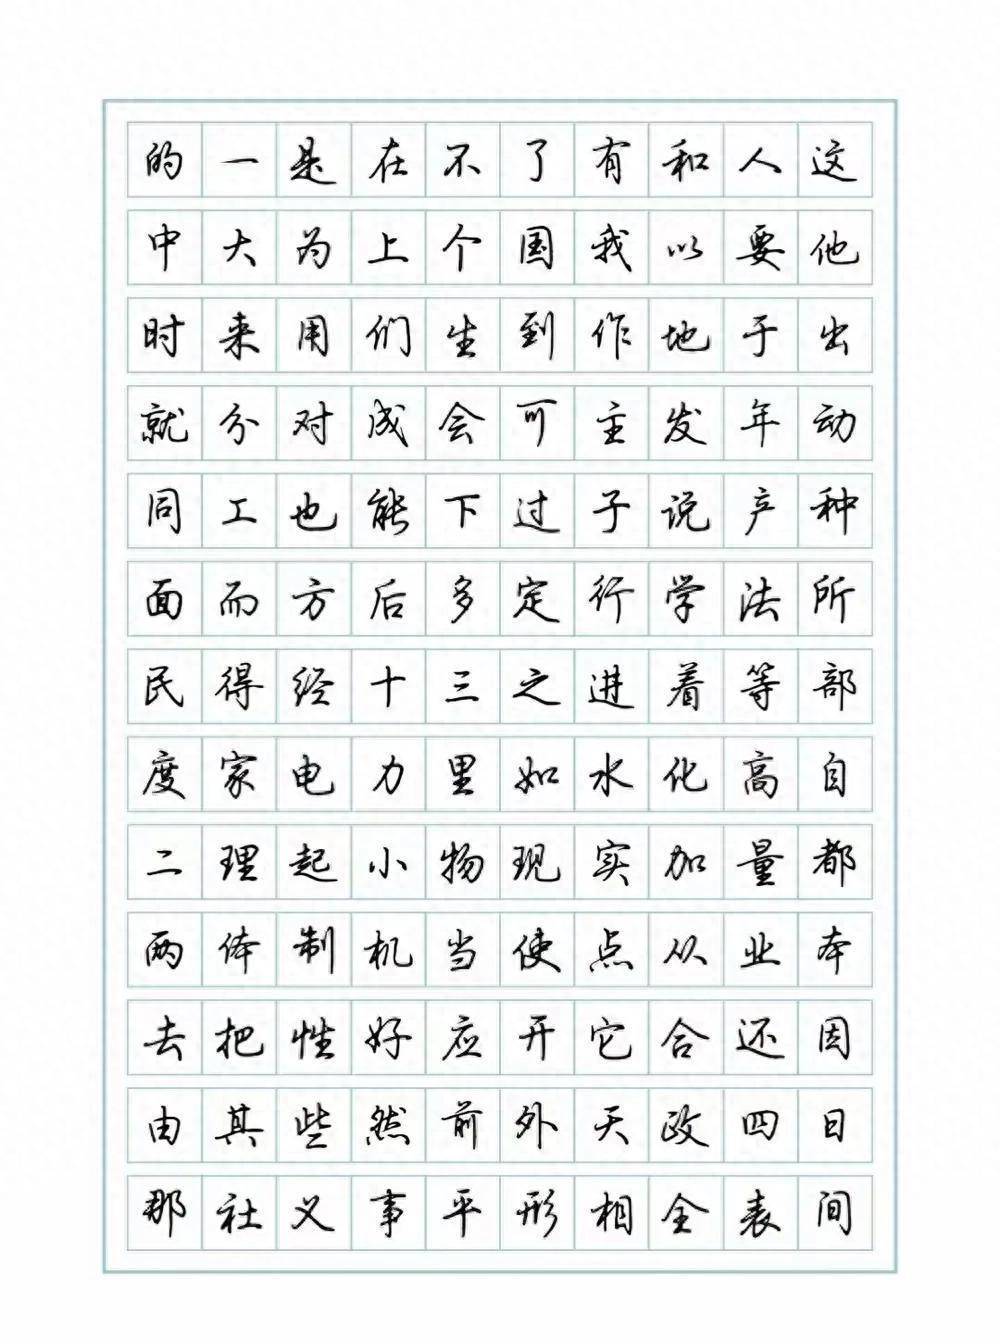 的一是在不了有和人这
中大为上个国我以要他
时来用们生到作地于出
就分对成会可主发年动
同工也能下过子说产种
面而方后多定行学法所
民得经十三之进着等部
度家电力里如水化高自
二理起小物现实加量都
两体制机当使点从业本
去把性好应开它合还因
由其些然前外天政四日
那社义事平形相全表间